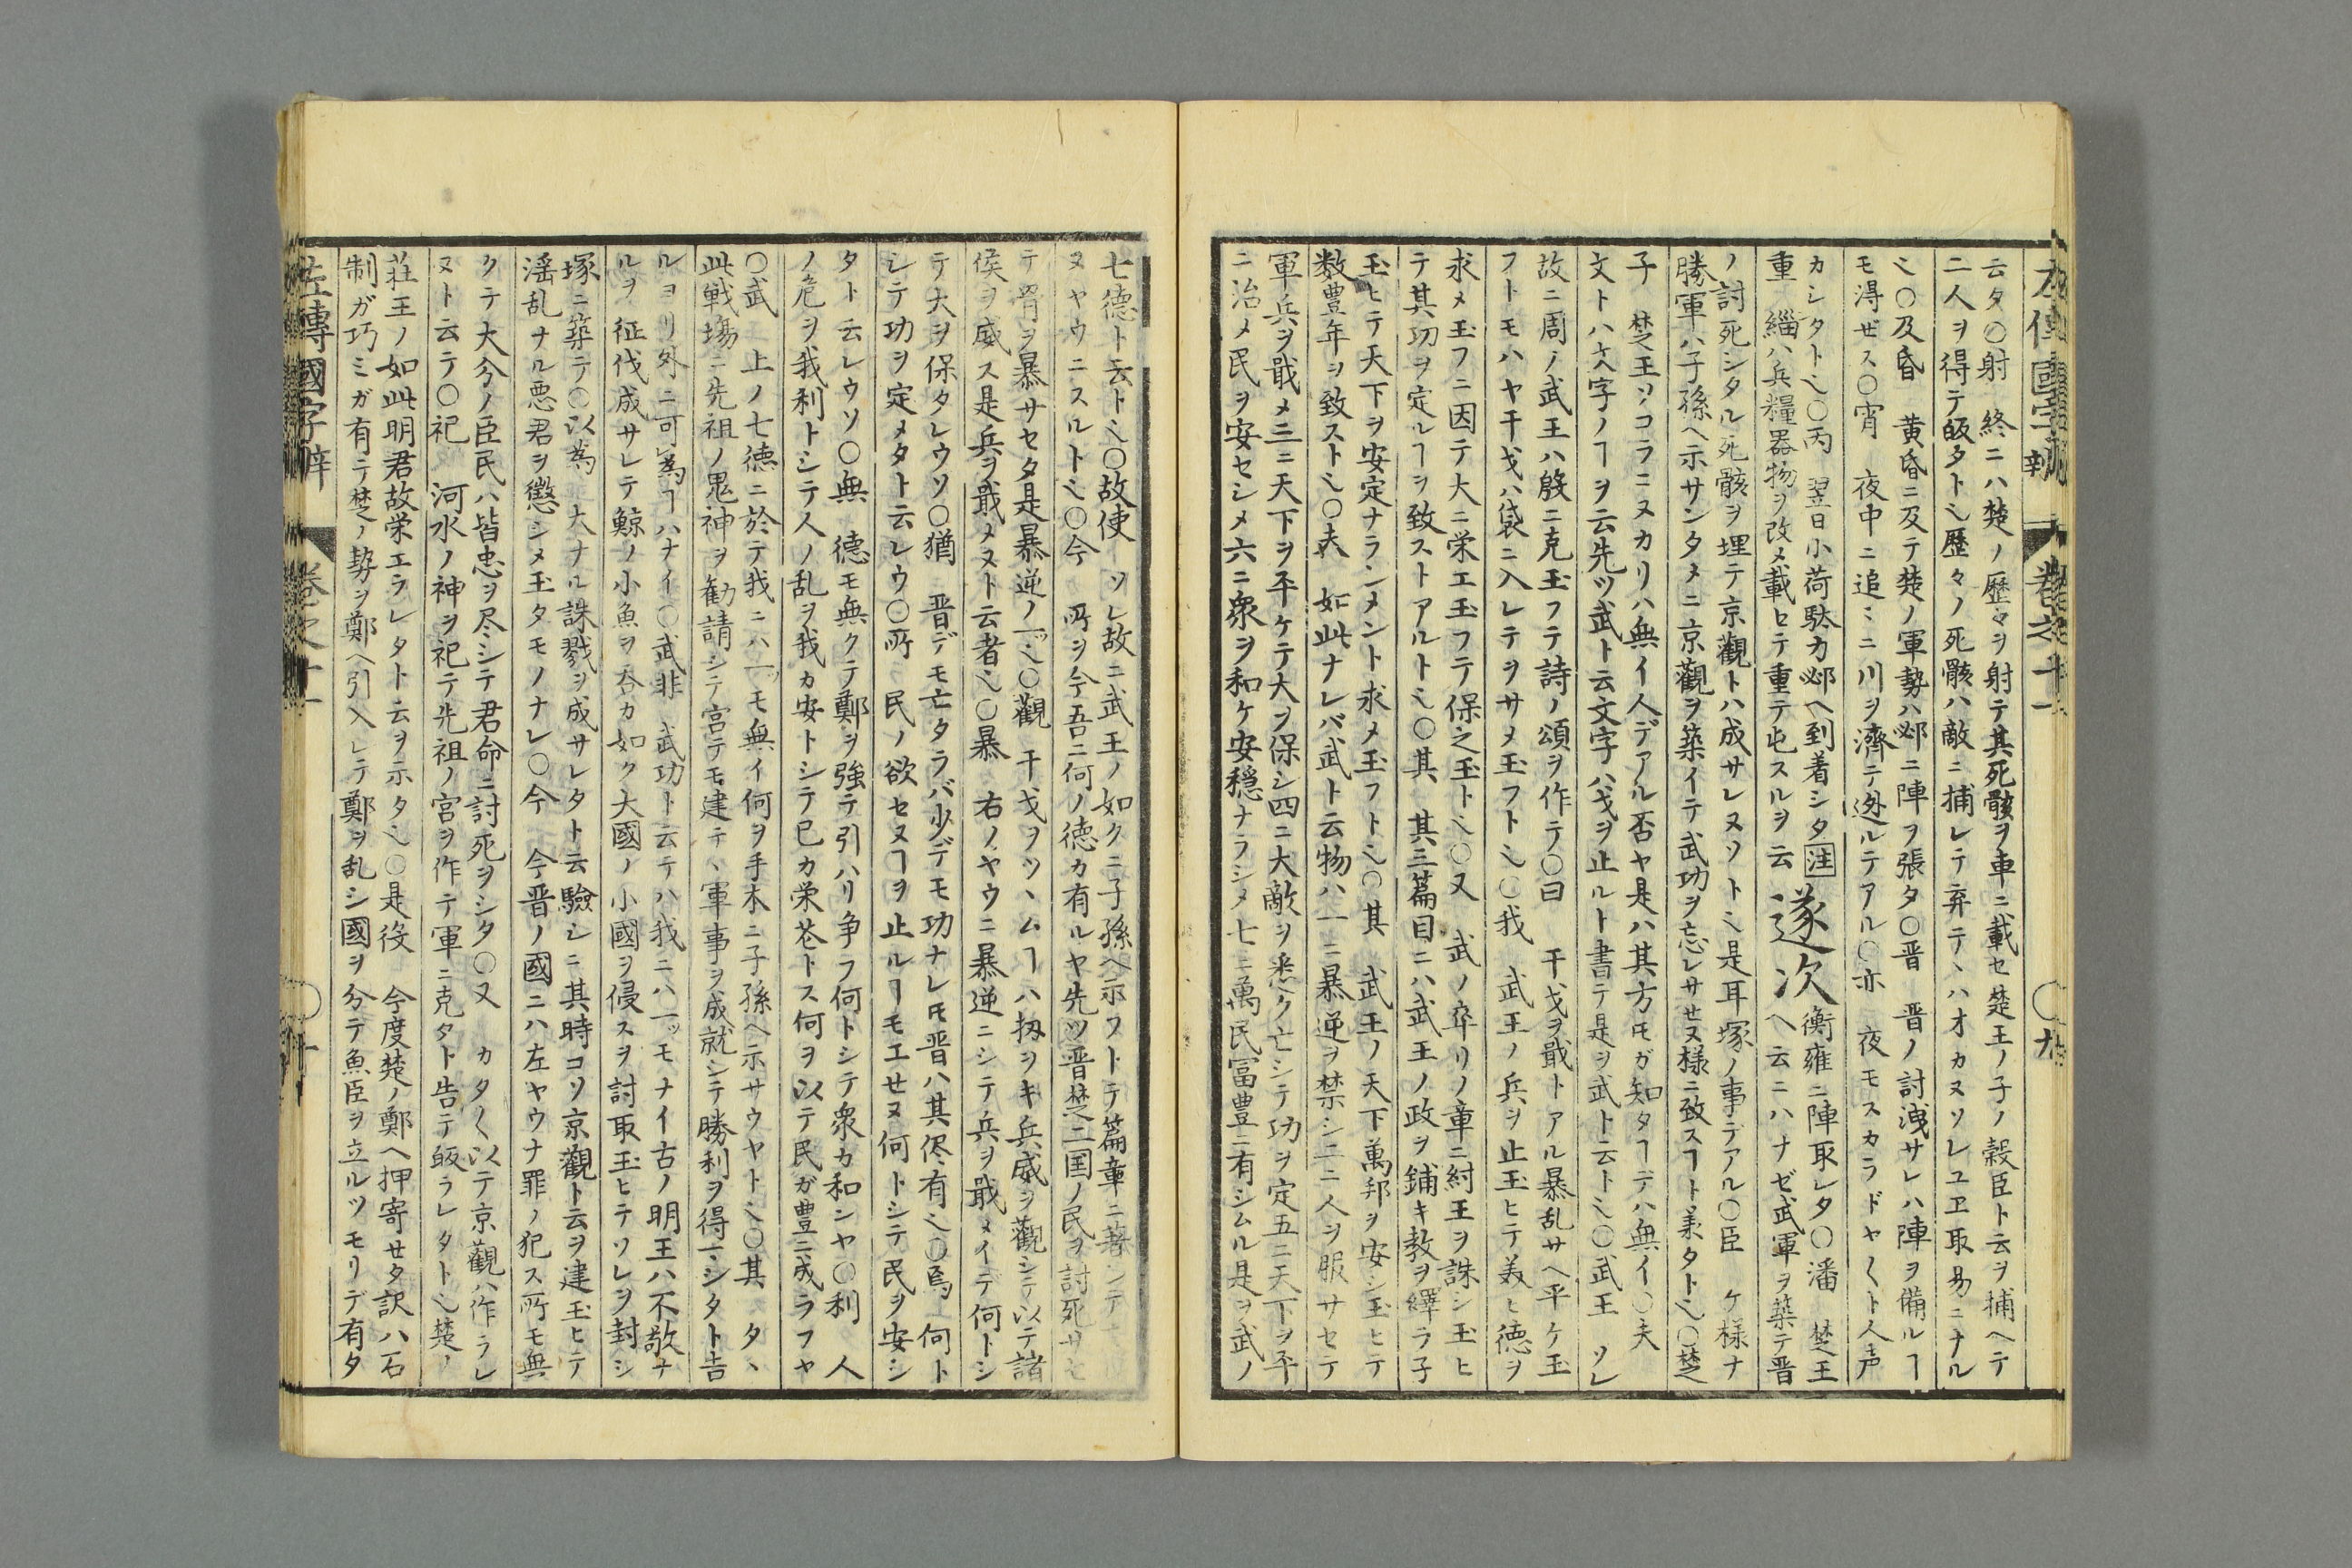 左傳國字辨 卷之十一 〇九
云タ〇射 終ニハ楚ノ歴々ヲ射テ其死骸ヲ車ニ載セ楚王ノ子ノ穀臣ト云ヲ捕ヘテ
二人ヲ得テ皈タト〻歴々ノ死骸ハ敵ニ捕レテ弃テヽハオカヌソレユヱ取易ニナル
〻〇及昏 黄昏ニ及テ楚ノ軍勢ハ邲ニ陣ヲ張タ〇晋 晋ノ討洩サレハ陣ヲ備ルヿ
モ淂ぜス〇宵 夜中ニ追〻ニ川ヲ濟テ迯ルテアル〇亦 夜モスカラドヤ〱ト人声
カシタト〻〇丙 翌日小荷駄カ邲ヘ到着シタ注 遂次 衡雍ニ陣取レタ〇潘 楚王
重 緇ハ兵糧器物ヲ改メ載ヒテ重テ屯スルヲ云 ヘ云ニハナゼ武軍ヲ築テ晋
ノ討死シタル死骸ヲ埋テ京觀トハ成サレヌソト〻是耳塚ノ事デアル〇臣 ケ様ナ
勝軍ハ子孫ヘ示サンタメニ京觀ヲ築イテ武功ヲ忘レサセヌ様ニ致スヿト羕タト〻〇楚
子 楚王ソコラニヌカリハ無イ人デアル否ヤ是ハ其方𪜈ガ知タヿデハ無イ〇夫
文トハ文字ノヿヲ云先ツ武ト云文字ハ戈ヲ止ルト書テ是ヲ武ト云ト〻〇武王 ソレ
故ニ周ノ武王ハ殷ニ克玉フテ詩ノ頌ヲ作テ〇曰 干戈ヲ戢トアル暴乱サヘ平ケ玉
フトモハヤ干戈ハ袋ニ入レテヲサメ玉フト〻〇我 武王ノ兵ヲ止玉ヒテ美ヒ徳ヲ
求メ玉フニ因テ大ニ栄エ玉フテ保之玉ト〻〇又 武ノ卒リノ章ニ紂王ヲ誅シ玉ヒ
テ其功ヲ定ルヿヲ致ストアルト〻〇其 其三篇目ニハ武王ノ政ヲ鋪キ教ヲ繹ラ子
玉ヒテ天下ヲ安定ナランメント求メ玉フト〻〇其 武王ノ天下萬邦ヲ安シ玉ヒテ
数豊年ヲ致スト〻〇夫 如此ナレバ武ト云物ハ一ニ暴逆ヲ禁シ二ニ人ヲ服サセテ
軍兵ヲ戢メ三ニ天下ヲ平ケテ大ヲ保シ四ニ大敵ヲ悉ク亡シテ功ヲ定五ニ天下ヲ平
ニ治メ民ヲ安セシメ六ニ衆ヲ和ケ安穏ナラシメ七ニ萬民冨豊ニ有シムル是ヲ武ノ
七徳ト云ト〻〇故使 ソレ故ニ武王ノ如クニ子孫ヘ示フトテ篇章ニ著シテ
ヌヤウニスルト〻〇今 所ヲ今吾ニ何ノ徳カ有ルヤ先ツ晋楚二国ノ民ヲ討死サセ
テ骨ヲ暴サセタ是暴逆ノ一ツ〻〇觀 干戈ヲツヽムヿハ扨ヲキ兵威ヲ觀シテ以テ諸
侯ヲ威ス是兵ヲ戢メヌト云者〻〇暴 右ノヤウニ暴逆ニシテ兵ヲ戢メイテ何トシ
テ大ヲ保タレウソ〇猶 晋デモ亡タラバ少デモ功ナレ𪜈晋ハ其侭有〻〇焉 何ト
シテ功ヲ定メタト云レウ〇所 民ノ欲セヌヿヲ止ルヿモエせヌ何トシテ民ヲ安シ
タト云レウソ〇無 徳モ無クテ鄭ヲ強テ引ハリ争フ何トシテ衆カ和ンヤ〇利 人
ノ危ヲ我利トシテ人ノ乱ヲ我カ安トシテ已カ栄花トス何ヲ以テ民ガ豊ニ成ラフヤ
〇武 上ノ七徳ニ於テ我ニハ一ツモ無イ何ヲ手本ニ子孫ヘ示サウヤト〻〇其 タヽ
此戦場ニ先祖ノ鬼神ヲ勧請シテ宮テモ建テヽ軍事ヲ成就シテ勝利ヲ得一シタト告
ルヨリ外ニ可爲ヿハナイ〇武非 武功ト云テハ我ニハ一ツモナイ古ノ明王ハ不敬ナ
ルヲ征伐成サレテ鯨ノ小魚ヲ呑カ如ク大國ノ小國ヲ侵スヲ討取玉ヒテソレヲ封シ
塚ニ築テ〇以爲 大ナル誅戮ヲ成サレタト云驗シニ其時コソ京觀ト云ヲ建玉ヒテ
滛乱ナル悪君ヲ懲シメ玉タモノナレ〇今 今晋ノ國ニハ左ヤウナ罪ノ犯ス所モ無
クテ大今ノ臣民ハ皆忠ヲ尽シテ君命ニ討死ヲシタ〇又 カタ〱以テ京觀ハ作ラレ
ヌト云テ〇祀 河水ノ神ヲ祀テ先祖ノ宮ヲ作テ軍ニ克タト告テ皈ラレタト〻楚ノ
荘王ノ如此明君故栄エラレタト云ヲ示タ〻〇是役 今度楚ノ鄭ヘ押寄せタ訳ハ石
制ガ巧ミガ有テ楚ノ勢ヲ鄭ヘ引入レテ鄭ヲ乱シ國ヲ分テ魚臣ヲ立ルツモリデ有タ
左傳國字辨 卷之十一 〇十